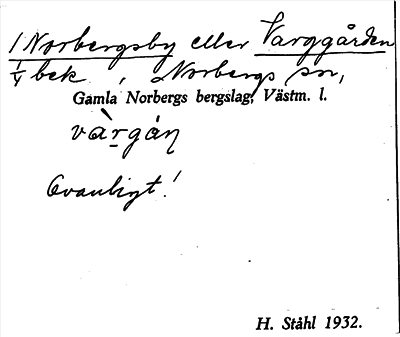 1 Norbergsby eller Varggården
1/4 bek , Norbergs sn,
Gamla Norbergs bergslag, Västm. l.
và̱rgån
Ovanligt!
H. Ståhl 1932.